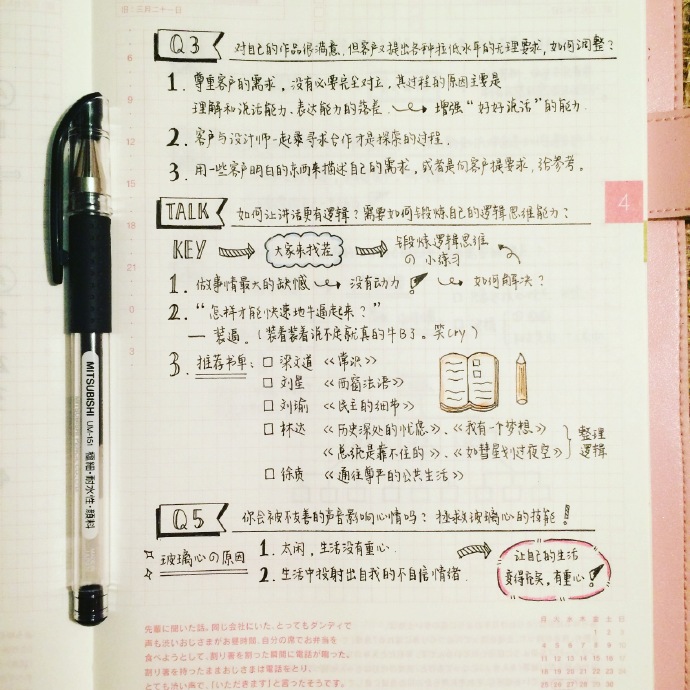 三月二十一日
Q3 对自己的作品很满意,但客户又提出各种拉低水准的无理要求,如何调整?
1. 尊重客户的需求,没有必要完全对立,其过程的原因主要是
理解和说话能力、表达能力的落差. 增强“好好说话”的能力.
2. 客户与设计师一起来寻求合作才是探索的过程.
3. 用一些客户明白的东西来描述自己的需求,或者是向客户提要求,给参考。
4
TALK 如何让讲话更有逻辑?需要如何锻炼自己的逻辑思维能力?
KEY 大家来找茬 锻炼逻辑思维
の 小练习
1. 做事情最大的缺憾 没有动力! 如何解决?
2. “怎样才能快速地牛逼起来?”
— 装逼。(装着装着说不定就真的牛B了。笑cry)
3. 推荐书单: □ 梁文道 《常识》
□ 刘星 《西窗法语》
□ 刘瑜 《民主的细节》
□ 林达 《历史深处的忧虑》、《我有一个梦想》
《总统是靠不住的》、《如彗星划过夜空》
整理
逻辑
□ 徐贲 《通往尊严的公共生活》
Q5 你会被不友善的声音影响心情吗?拯救玻璃心的技能!
玻璃心の原因 1. 太闲,生活没有重心.
2. 生活中投射出自我的不自信情绪.
让自己的生活
变得充实,有重心!
MITSUBISHI UM-151 極細・耐水性・顔料
先輩に聞いた話。同じ会社にいた、とってもダンディで
声も渋いおじさまがお昼時間、自分の席でお弁当を
食べようとして、割り箸を割った瞬間に電話が鳴った。
割り箸を持ったままおじさまは電話をとり、
とても渋い声で、「いただきます」と言ったそうです。
月 火 水 木 金 土 日